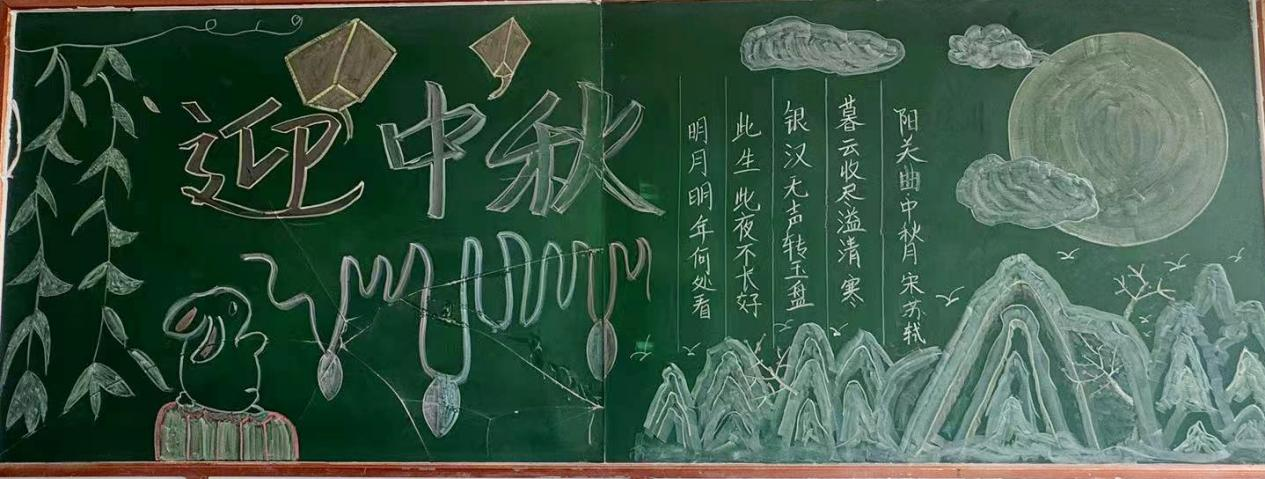 迎中秋
阳关曲中秋月 宋 苏轼
暮云收尽溢清寒
银汉无声转玉盘
此生此夜不长好
明月明年何处看